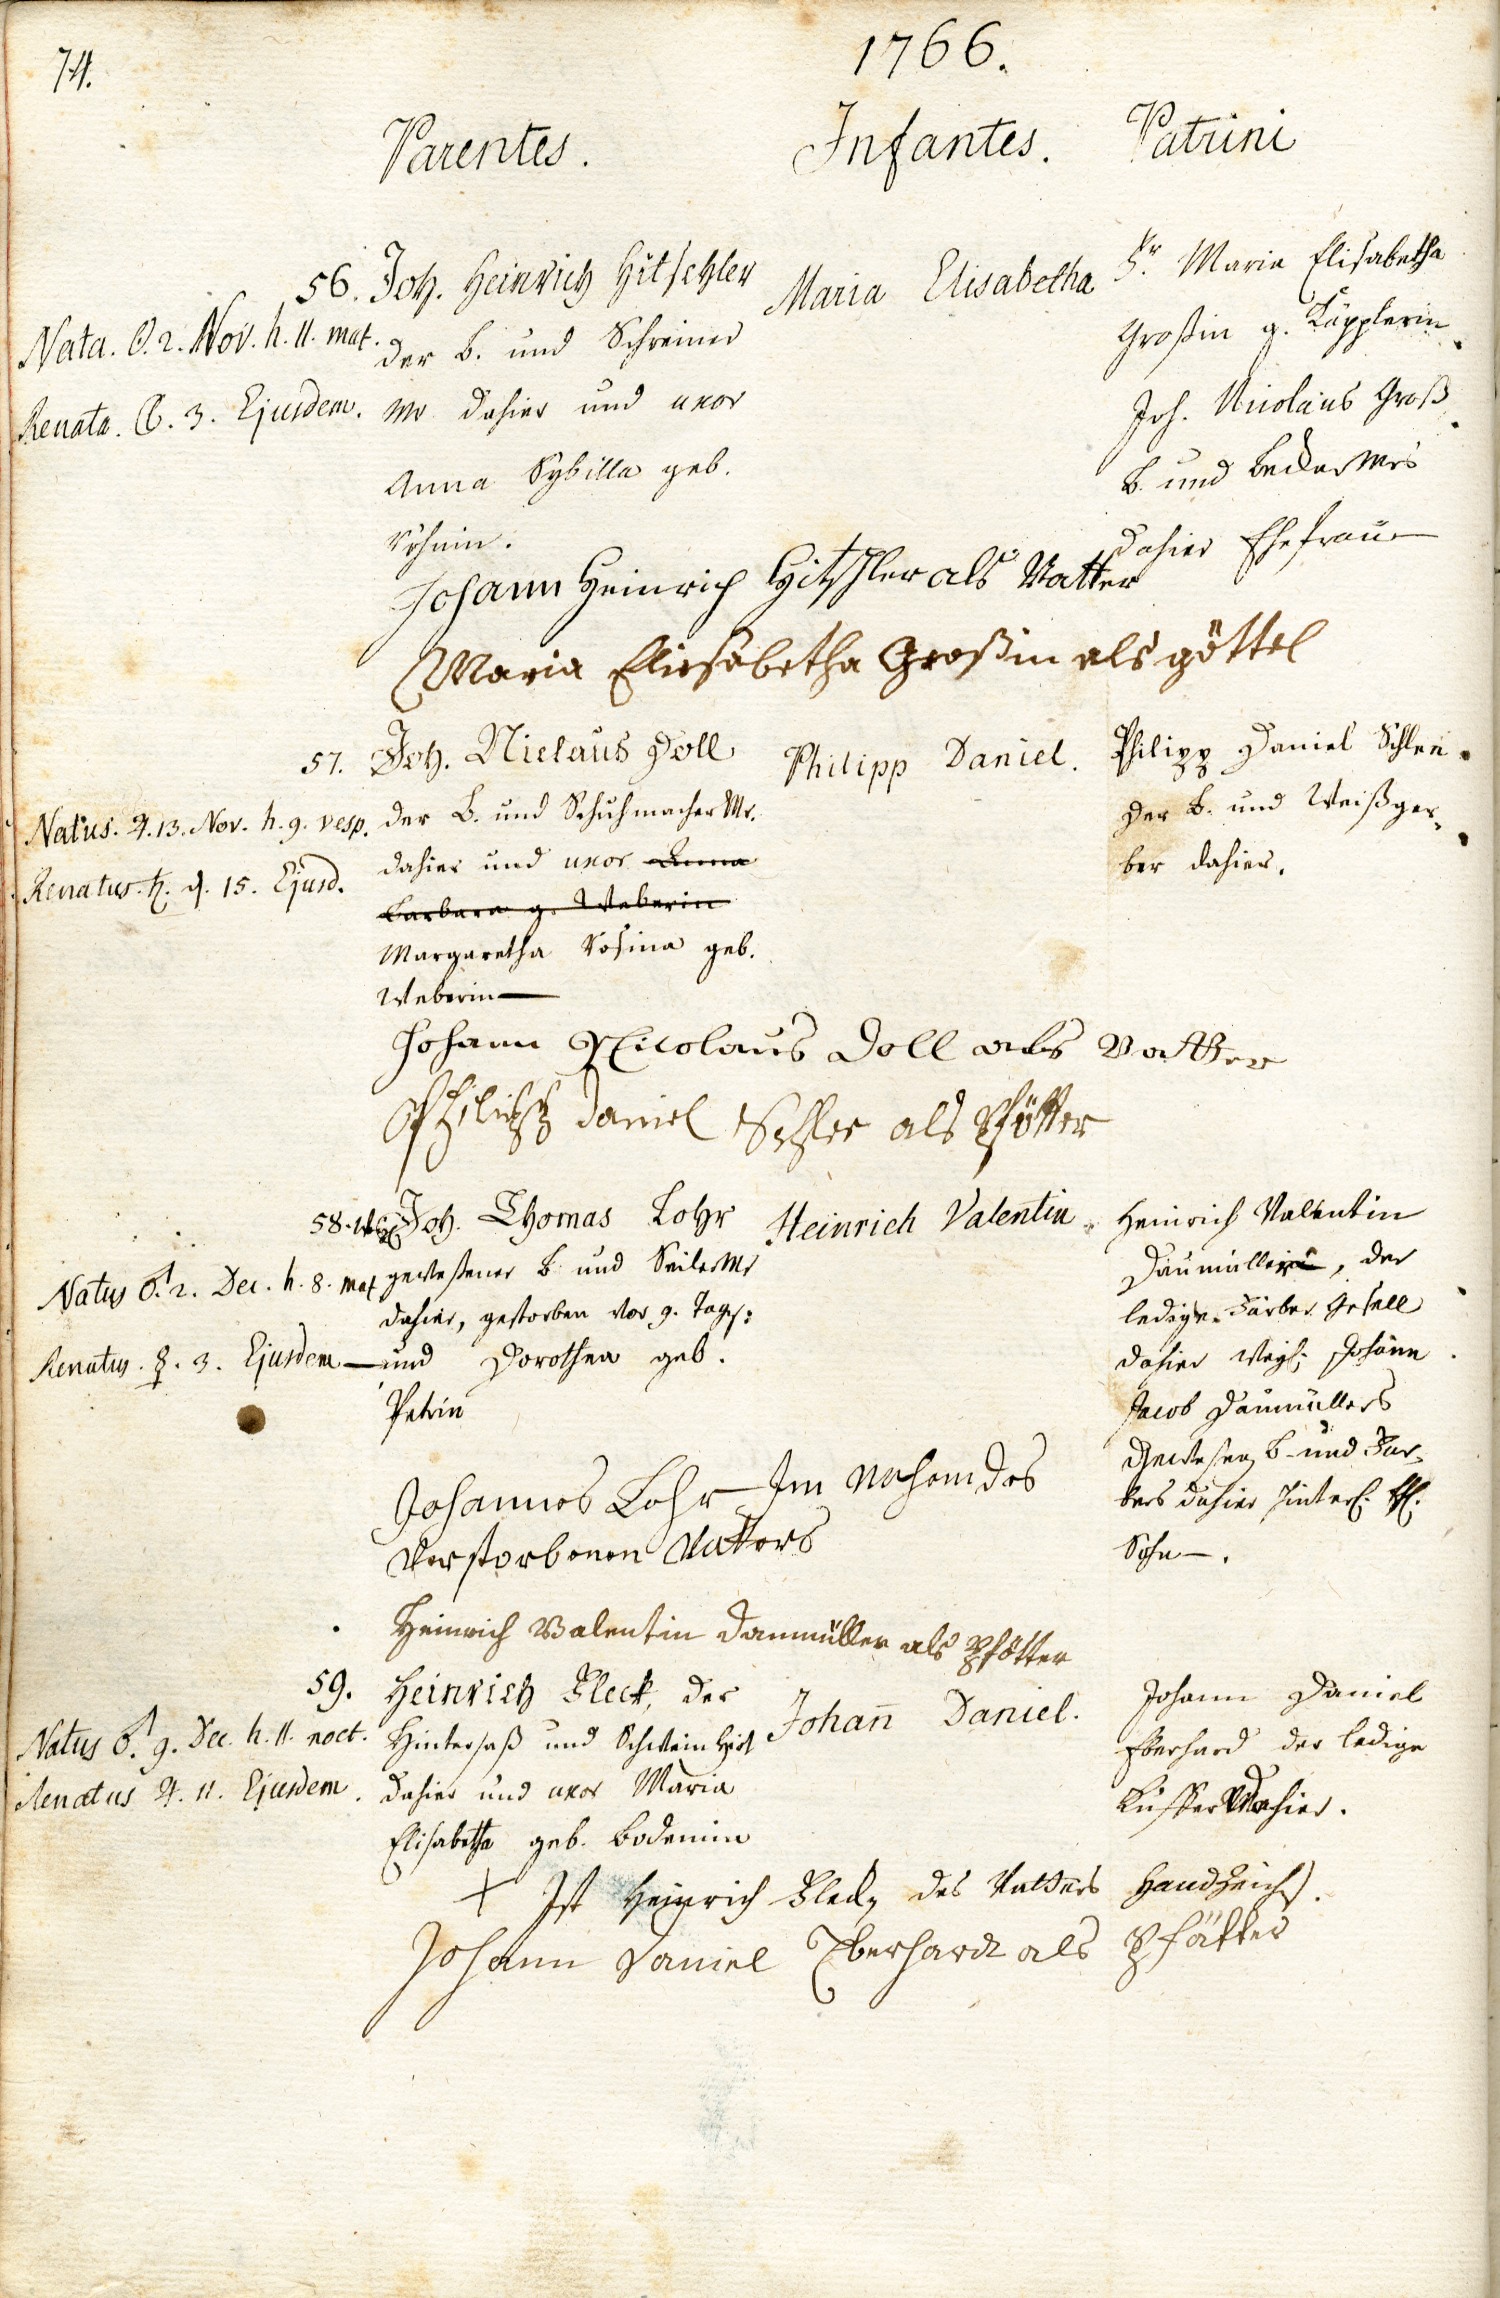 74.
1766.
Parentes. Infantes. Patrini
56. Joh. Heinrich Hitschler
Nata. ☉. 2. Nov. h. 11. mat. der B. und Schreiner
Renata. ☾. 3. Ejusdem. Mr dahier und uxor
Anna Sybilla geb.
Maria Elisabetha
Fr. Maria Elisabetha
Großin g. Käpplerin
Joh. Nicolaus Groß
B. und Becker Mrs
dahier Ehefrau
Johann Heinrich Hitschler als Vatter
Maria Eliesabetha Großin als göttel
57. Joh. Niclaus Doll
Natus. ♃. 13. Nov. h. 9. vesp. der B. und Schuhmacher Mr.
Renatus. ♄. d. 15. Ejusd. dahier und uxor Anna
Barbara g. Weberin
Margaretha Rosina geb.
Weberin
Philipp Daniel.
Philipp Daniel Schlee
der B. und Weißger-
ber dahier.
Johann Nicolaus Doll als Vatter
Philipp Daniel Schlee als Pfötter
58. Joh. Thomas Lohr
Natus ♂. 2. Dec. h. 8. mat gewesener B. und Seiler Mr
dahier, gestorben vor 9. Tag:
Renatus. ☿. 3. Ejusdem und Dorothea geb.
Petrin
Heinrich Valentin
Heinrich Valentin
Daumüller, der
ledige Färber Gesell
dahier Weyl. Johann
Jacob Daumüllers
gewesen B. und Fär-
bers dahier hinterl.
Sohn.
Johannes Lohr Im Nahem des
Verstorbenen Vatters
Heinrich Valentin Daumüller als Pfötter
59. Heinrich Fleck, der
Natus ♂. 9. Dec. h. 11. noct. Hintersaß und Schwein Hirt
Renatus ♃. 11. Ejusdem. dahier und uxor Maria
Elisabetha geb. Bodenin
Johan̄ Daniel.
Johann Daniel
Eberhard der ledige
Kuffer dahier.
+ Ist Heinrich Fleck des Vatters Handzeich.
Johann Daniel Eberhardt als Pfätter